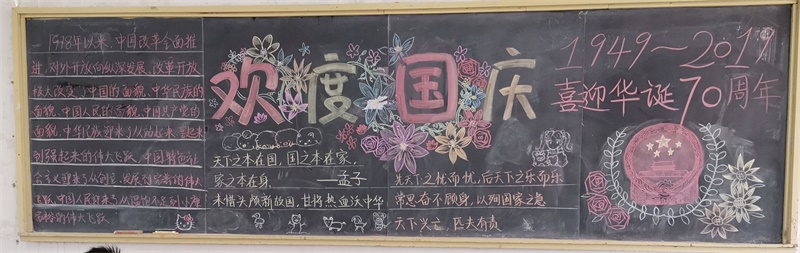 1978年以来，中国改革全面推
进，对外开放向纵深发展，改革开放
极大改变了中国的面貌，中华民族的
面貌，中国人民的面貌，中国共产党的
面貌，中华民族迎来了从站起来，富起来
到强起来的伟大飞跃，中国特色社
会主义迎来了从创立，发展到完善的伟大
飞跃，中国人民迎来了从温饱不足到小康
富裕的伟大飞跃
欢度国庆
天下之本在国，国之本在家，
家之本在身 ——孟子
未惜头颅新故国，甘将热血沃中华
先天下之忧而忧，后天下之乐而乐
常思奋不顾身，以殉国家之急
天下兴亡，匹夫有责
1949～2019
喜迎华诞70周年